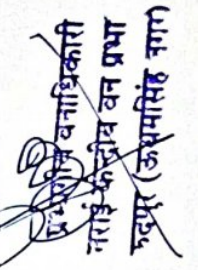 प्रभागीय वनाधिकारी
तराई केन्द्रीय वन प्रभाग
रुद्रपुर (ऊधमसिंह नगर)